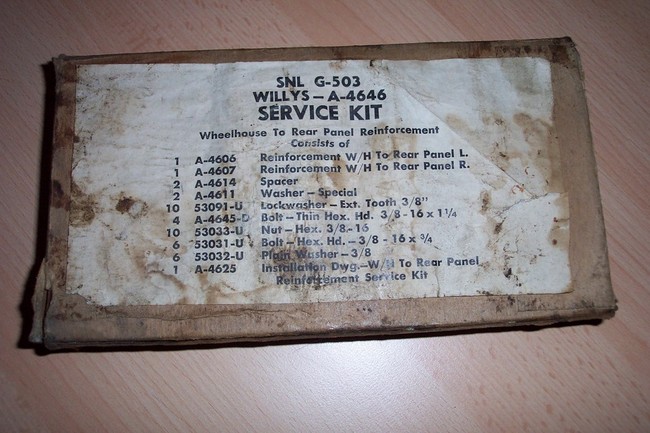 SNL G-503
WILLYS – A-4646
SERVICE KIT
Wheelhouse To Rear Panel Reinforcement
Consists of
1 A-4606 Reinforcement W/H To Rear Panel L.
1 A-4607 Reinforcement W/H To Rear Panel R.
2 A-4614 Spacer
2 A-4611 Washer – Special
10 53091-U Lockwasher – Ext. Tooth 3/8"
4 A-4645-D Bolt – Thin Hex. Hd. 3/8 - 16 x 1 1/4
10 53033-U Nut – Hex. 3/8 - 16
6 53031-U Bolt – Hex. Hd. – 3/8 - 16 x 3/4
6 53032-U Plain Washer – 3/8
1 A-4625 Installation Dwg. – W/H To Rear Panel
Reinforcement Service Kit